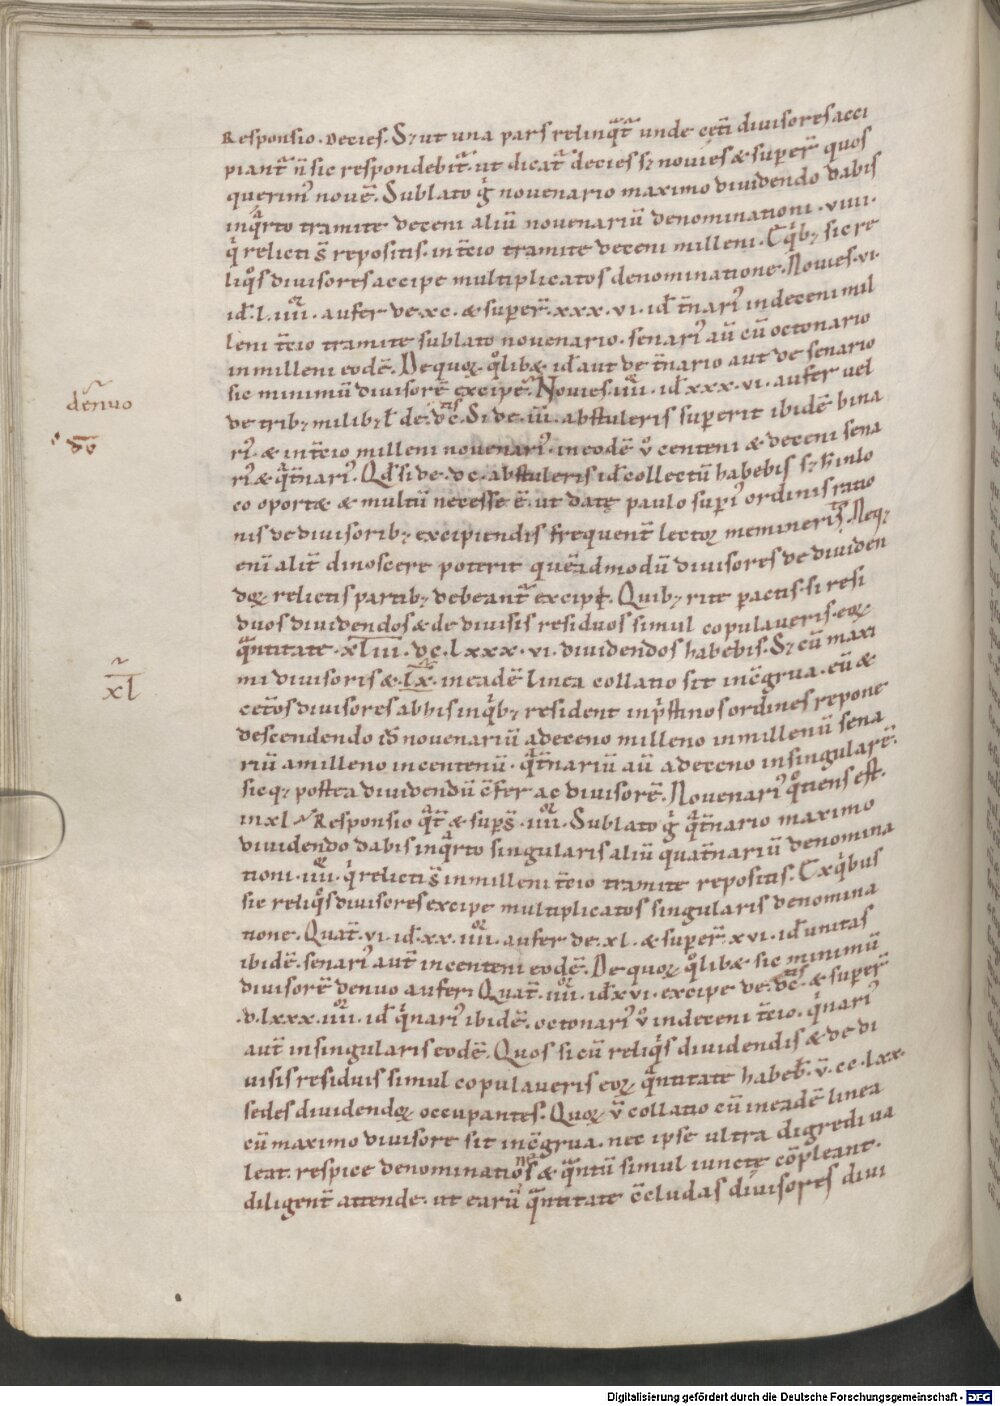 Responsio. Decies. Sꝫ ut una pars relinqͣt̃ unde cet̃i divisores acci
piant̃ ñ sic respondebit̃. ut dicat̃ decies sꝫ novies & superẽ quos
querimꝰ novẽ. Sublato gͥ novenario maximo dividendo dabis
inqͣrto tramite deceni aliũ novenariũ denominationi. viiii.
qͥ relictis s̃ repositis. in t̃cio tramite deceni milleni. Exqͥbꝫ sic re
liqͦs divisores accipe multiplicatos denominatione. Novies. vi.
id̃. l. iiii. aufer de. xc. & superẽ. xxx. vi. id̃ t̃narꝰ indeceni mil
leni t̃cio tramite sublato novenario. senarꝰ aũ cũ octonario
inmilleni eodẽ. De quoꝝ qͦlibet id̃ aut de t̃nario aut de senario
sic minimũ divisorẽ excipẽ. Novies. iiii. id̃ xxx. vi. aufer vel
de tribꝫ milibꝫ ł de. dc̃. Si de. iii. abstuleris superit ibidẽ bina
rꝰ. & in t̃cio milleni novenarꝰ. in eodẽ ṽ centeni & deceni sena
rꝰ & qͣt̃narꝰ. Qd̃ si de. dc. abstuleris id̃ collectũ habebis sꝫ hinlo
co oportet & multũ necesse ẽ. ut datę paulo supiꝰ ordinis ratio
nis de divisoribꝫ excipiendis frequent̃ lectoꝝ meminerĩs. Neqꝫ
enĩ alit̃ dinoscere poterit quẽadmodũ divisores de dividen
doꝝ relictis partibꝫ debeant̃ excipi. Quibꝫ rite pactis. si resi
duos dividendos & de divisis residuos simul copulaveris. eoꝝ
qͣntitate. xliii. dc. lxxx. vi. dividendos habebis. Sꝫ cũ maxi
mi divisoris &. lx. ineadẽ linea collatio sit incõgrua. eũ &
cet̃os divisores abhis inqͥbꝫ resident in pͥstinos ordines repone
descendendo id̃ novenariũ adeceno milleno inmillenũ sena
riũ amilleno incentenũ. qͣt̃nariũ aũ adeceno insingularẽ.
sicqꝫ postea dividendũ cõfer ac divisorẽ. Novenarꝰ qͦtiens est.
inxl Responsio qͣt̃ & supẽ s̃. iiii. Sublato gͥ qͣt̃nario maximo
dividendo dabis inqͣrto singularis aliũ quat̃nariũ denomina
tioni. iiii. qͥ relictis s̃ inmilleni t̃cio tramite repositis. Exqͥbus
sic reliqͦs divisores excipe multiplicatos singularis denomina
tione. Quat̃. vi. id̃. xx. iiii. aufer de. xl. & superẽ. xvi. id̃ unitas
ibidẽ. senarꝰ aut̃ incenteni eodẽ. De quoꝝ qͦlibet sic minimũ
divisorẽ denuo auferi Quat̃. iiii. id̃ xvi. excipe de. dc̃. & superẽ
. d. lxxx. iiii. id̃ qͥnarꝰ ibidẽ. octonarꝰ ṽ indeceni t̃cio. qͥnarꝰ
aut̃ insingularis eodẽ. Quos si cũ reliqͥs dividendis & de di
visis residuis simul copulaveris eoꝝ qͣntitate habeb̃. v̄. cc. lxx.
sedes dividendoꝝ occupantes. Quoꝝ ṽ collatio cũ ineadẽ linea
cũ maximo divisore sit incõgrua. nec ipse ultra digredi va
leat. respice denominationes & qͣntũ simul iunctę cõpleant.
diligent̃ attende. ut earũ qͣntitate cõcludas divisores divi
denuo
xl